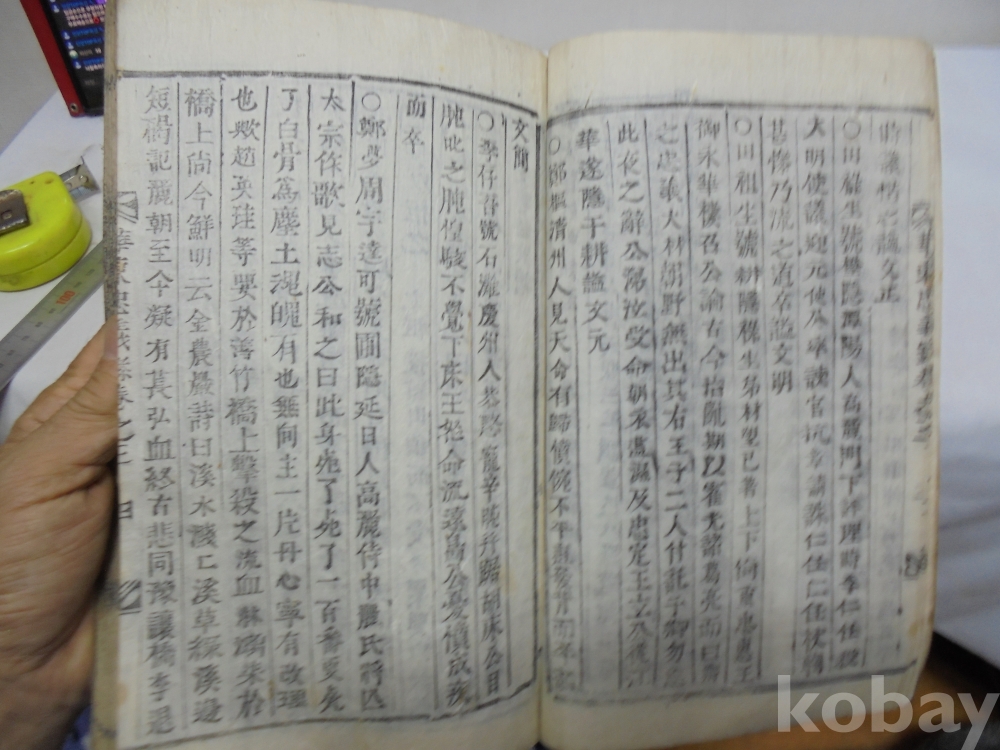 諡文正
○田祿生號樵隱潭陽人高麗門下評理時李仁任
大明使議迎元使公率諫官抗章請誅仁任仁任杖
甚慘乃流之道卒諡文明
○田祖生號耕隱祿生弟材望已著上下倚重忠惠王
御水車樓召公論古今治亂期以霍光諸葛亮而曰
之忠義大材朝野無出其右王子二人付託于卿勿
此夜之辭公涕泣受命朝來及忠定王立
華遂隱于耕諡文元
○鄭樞淸州人見天命有歸憤惋不平疽發背而卒
文簡
○李存吾號石灘慶州人恭愍寵辛旽幷踞胡床公目
旽叱之旽惶駭不覺下床王怒命流遠島公憂憤成疾
而卒
○鄭夢周字達可號圃隱延日人高麗侍中麗氏將亡
太宗作歌見志公和之曰此身死了死了一百番更死
了白骨爲塵土魂魄有也無向主一片丹心寧有改理
也歟趙英珪等要於善竹橋上擊殺之流血淋漓染於
橋上尙今鮮明云金農巖詩曰溪水淺亡溪草綠溪邊
短碣記麗朝至今凝有萇弘血終古悲同豫讓橋李退
華東忠義錄卷之三 四
kobay